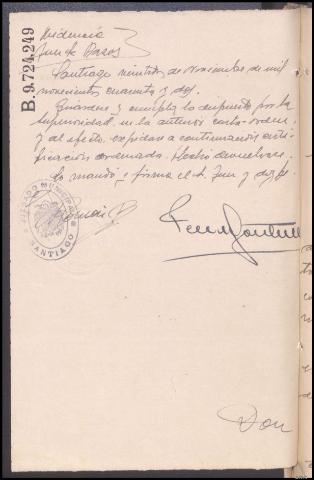 B.9.724.249
Providencia
Juez Sr. Pazos
Santiago veintitres de Noviembre de mil
novecientos cuarenta y dos.
Guárdese y cumpla lo dispuesto por la
Superioridad en la anterior carta-orden
y al efecto, expídase a continuación certi-
ficación ordenada. Hecho devuelvase.
Lo mandó y firma el Sr. Juez y doy fe.
JUZGADO MUNICIPAL
SANTIAGO
Don